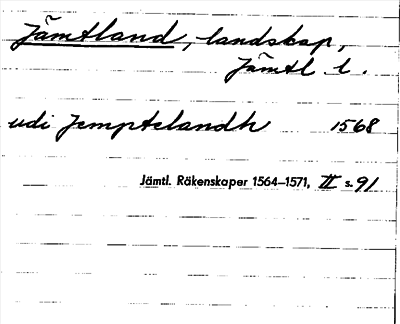 Jämtland, landskap,
Jämtl l.
udi Jemptelandh 1568
Jämtl. Räkenskaper 1564–1571, II s. 91